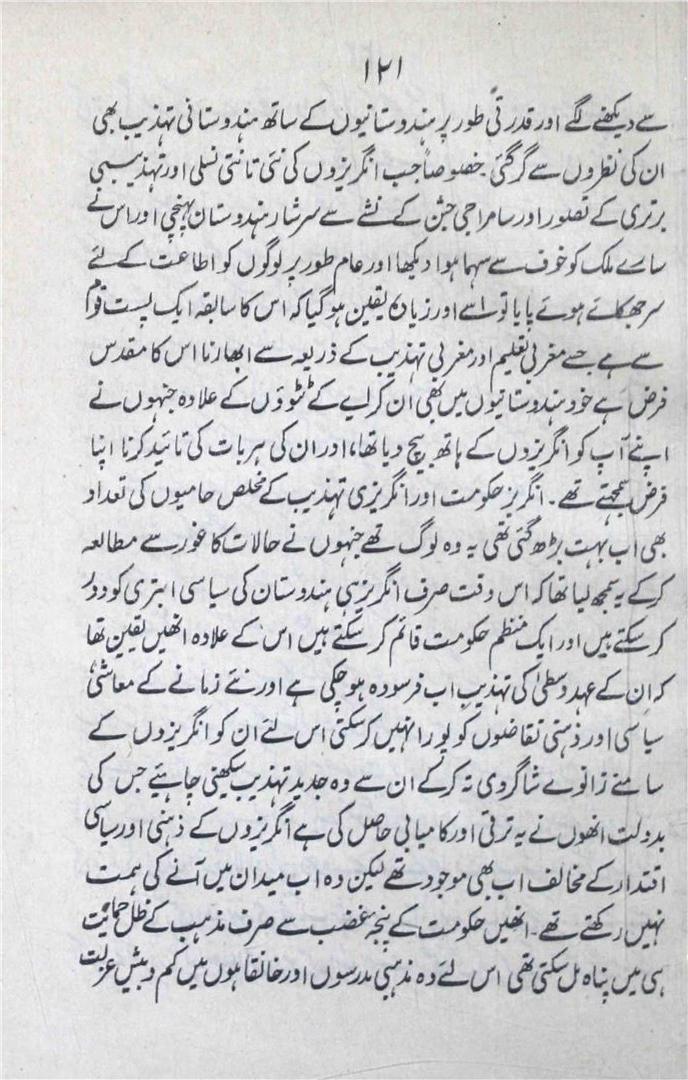 ۱۲۱
سے دیکھنے لگے اور قدرتی طور پر ہندوستانیوں کے ساتھ ہندوستانی تہذیب بھی
ان کی نظروں سے گر گئی خصوصاً جب انگریزوں کی نئی تانتی نسلی اور تہذیبی
برتری کے تصور اور سامراجی جشن کے نشے سے سرشار ہندوستان پہنچی اور اس نے
سارے ملک کو خوف سے سہما ہوا دیکھا اور عام طور پر لوگوں کو اطاعت کے لئے
سر جھکائے ہوئے پایا تو اسے اور زیادہ یقین ہو گیا کہ اس کا سابقہ ایک پست قوم
سے ہے جسے مغربی تعلیم اور مغربی تہذیب کے ذریعہ سے ابھارنا اس کا مقدس
فرض ہے خود ہندوستانیوں میں بھی ان کرایے کے ٹٹوؤں کے علاوہ جنہوں نے
اپنے آپ کو انگریزوں کے ہاتھ بیچ دیا تھا، اور ان کی ہر بات کی تائید کرنا اپنا
فرض سمجھتے تھے۔ انگریز حکومت اور انگریزی تہذیب کے مخلص حامیوں کی تعداد
بھی اب بہت بڑھ گئی تھی یہ وہ لوگ تھے جنہوں نے حالات کا غور سے مطالعہ
کر کے یہ سمجھ لیا تھا کہ اس وقت صرف انگریز ہی ہندوستان کی سیاسی ابتری کو دور
کر سکتے ہیں اور ایک منظم حکومت قائم کر سکتے ہیں اس کے علاوہ انھیں یقین تھا
کہ ان کے عہد وسطیٰ کی تہذیب اب فرسودہ ہو چکی ہے اور نئے زمانے کے معاشی،
سیاسی اور ذہنی تقاضوں کو پورا نہیں کر سکتی اس لئے ان کو انگریزوں کے
سامنے زانوے شاگردی تہ کر کے ان سے وہ جدید تہذیب سیکھنی چاہئے جس کی
بدولت انھوں نے یہ ترقی اور کامیابی حاصل کی ہے انگریزوں کے ذہنی اور سیاسی
اقتدار کے مخالف اب بھی موجود تھے لیکن وہ اب میدان میں آنے کی ہمت
نہیں رکھتے تھے۔ انھیں حکومت کے پنجۂ غضب سے صرف مذہب کے ظل حمایت
ہی میں پناہ مل سکتی تھی اس لئے وہ مذہبی مدرسوں اور خانقاہوں میں کم و بیش عزلت